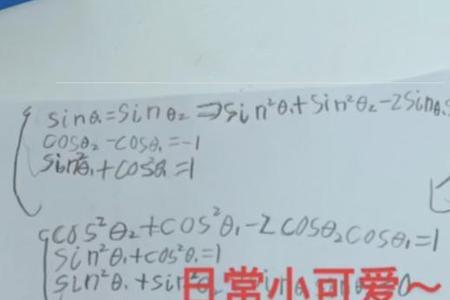 sinθ₁=sinθ₂⇒sin²θ₁+sin²θ₂-2sinθ₁
cosθ₂-cosθ₁=-1
sin²θ₁+cos²θ₁=1
cos²θ₂+cos²θ₁-2cosθ₂cosθ₁=1
sin²θ₁+cos²θ₁=1
sin²θ₁+sin²
日常小可爱~